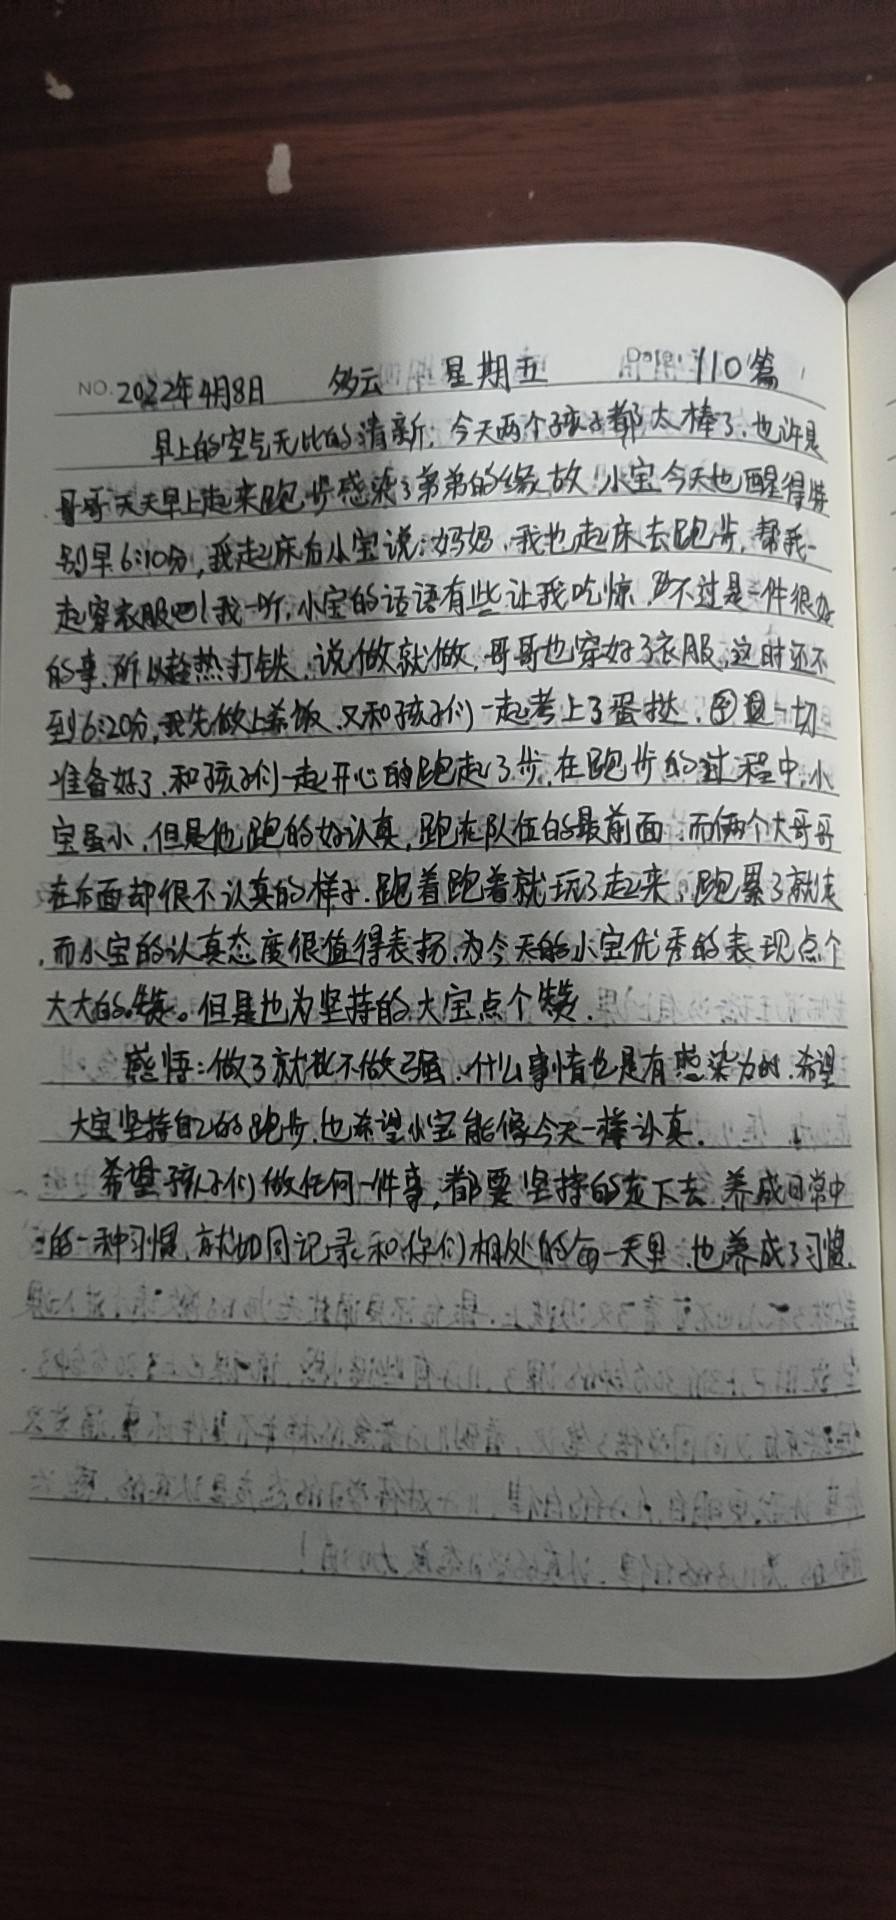 NO. 2022年4月8日 多云 星期五 Date. 110篇
早上的空气无比的清新，今天两个孩子都太棒了，也许是
哥哥天天早上起来跑步感染了弟弟的缘故！小宝今天也醒得特
别早6:10分，我起床后小宝说：妈妈，我也起床去跑步，帮我一
起穿衣服吧！我一听，小宝的话语有些让我吃惊，不过是一件很好
的事，所以趁热打铁，说做就做，哥哥也穿好了衣服，这时还不
到6:20分，我先做上茶饭，又和孩子们一起考上了蛋挞，一切
准备好了，和孩子们一起开心的跑起了步，在跑步的过程中，小
宝虽小，但是他跑的好认真，跑在队伍的最前面，而俩个大哥哥
在后面却很不认真的样子，跑着跑着就玩了起来，跑累了就走
，而小宝的认真态度很值得表扬，为今天的小宝优秀的表现点个
大大的赞。但是也为坚持的大宝点个赞，
感悟：做了就比不做强，什么事情也是有感染力的，希望
大宝坚持自己的跑步，也希望小宝能像今天一样认真，
希望孩子们做任何一件事，都要坚持的走下去，养成日常中
的一种习惯，就如同记录和你们相处的每一天里，也养成了习惯，